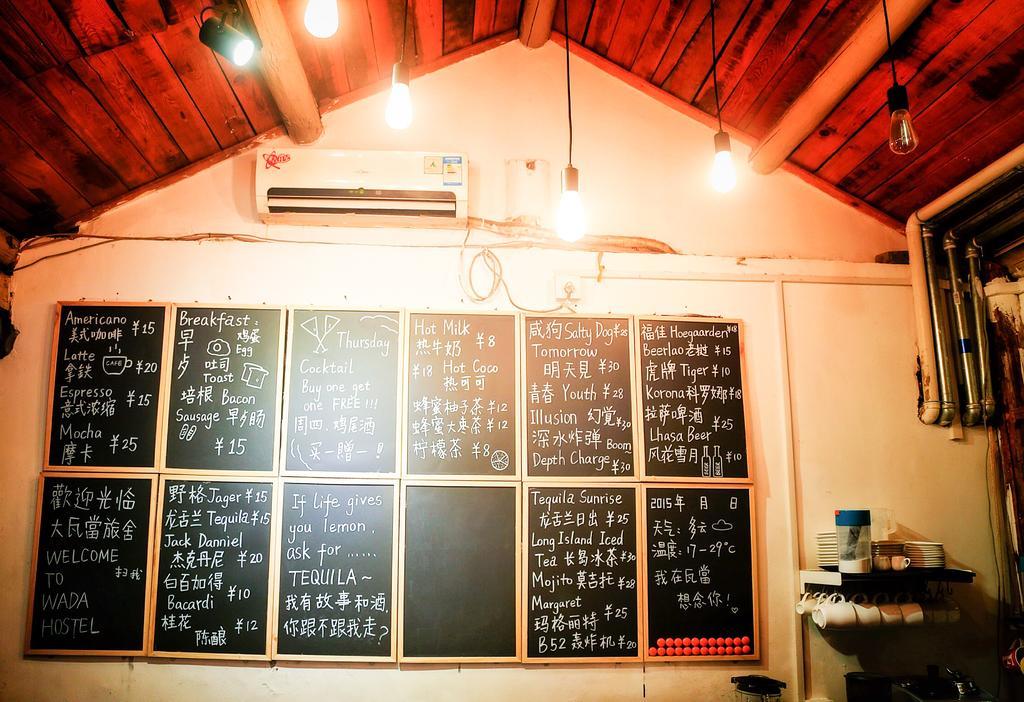 Americano
美式咖啡 ¥15
Latte
拿鉄 CAFE ¥20
Espresso
意式浓缩 ¥15
Mocha
摩卡 ¥25
Breakfast:
早夕 鸡蛋
Egg
吐司
Toast
培根 Bacon
Sausage 早夕肠
¥15
Thursday
Cocktail
Buy one get
one FREE!!!
周四.鸡尾酒
买一赠一!
Hot Milk
热牛奶 ¥8
¥18 Hot Coco
热可可
蜂蜜柚子茶 ¥12
蜂蜜大枣茶 ¥12
柠檬茶 ¥8
咸狗 Salty Dog ¥28
Tomorrow
明天見 ¥30
青春 Youth ¥28
Illusion 幻覚 ¥30
深水炸弹 Boom
Depth Charge ¥30
福佳 Hoegaarden ¥18
Beerlao 老挝 ¥15
虎牌 Tiger ¥10
Korona 科罗娜 ¥18
拉萨啤酒 ¥25
Lhasa Beer
风花雪月 ¥10
歡迎光临
大瓦當旅舍
WELCOME
TO 扫我
WADA
HOSTEL
野格 Jager ¥15
龙舌兰 Tequila ¥15
Jack Danniel
杰克丹尼 ¥20
白百加得
Bacardi ¥10
桂花
陈酿 ¥12
If life gives
you lemon,
ask for ......
TEQUILA~
我有故事和酒.
你跟不跟我走?
Tequila Sunrise
龙舌兰日出 ¥25
Long Island Iced
Tea 长岛冰茶 ¥30
Mojito 莫吉托 ¥28
Margaret
玛格丽特 ¥25
B52 轰炸机 ¥20
2015年 月 日
天气:多云
温度:17-29°C
我在瓦當
想念你!